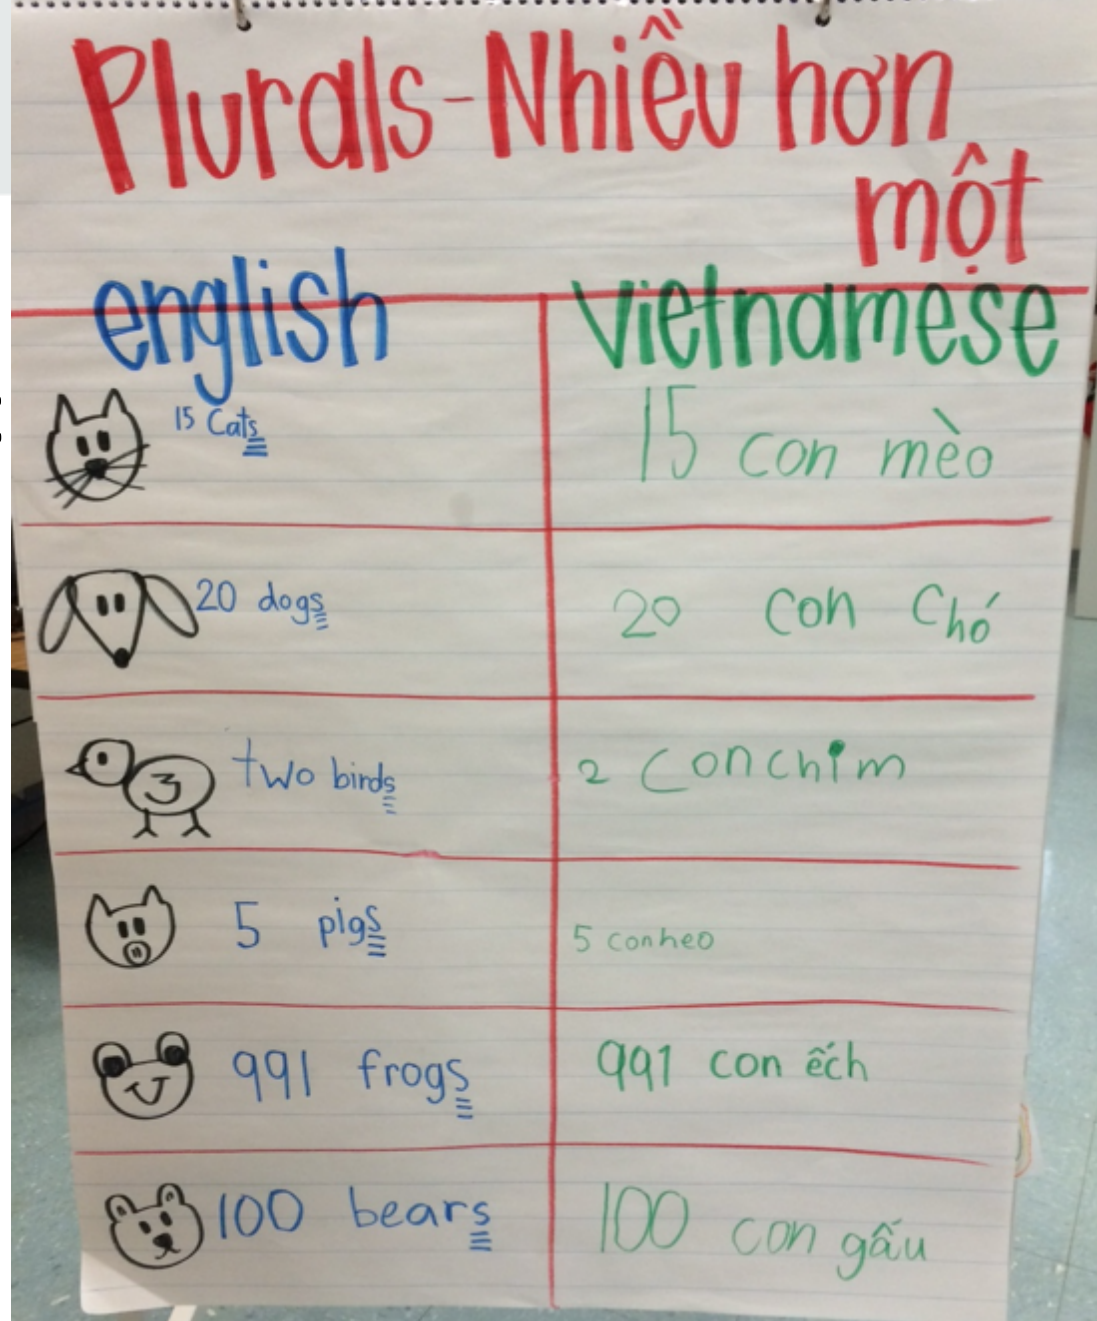 Plurals-Nhiều hơn
một
english vietnamese
15 Cats 15 con mèo
20 dogs 20 con chó
3 two birds 2 con chim
5 pigs 5 con heo
991 frogs 991 con ếch
100 bears 100 con gấu